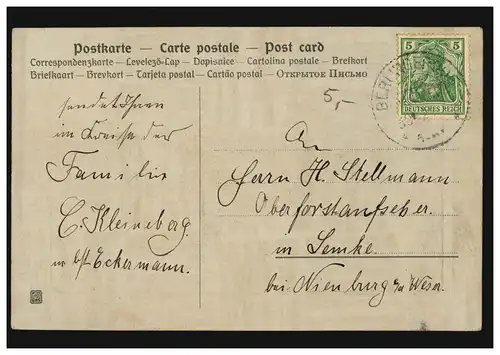 Postkarte — Carte postale — Post card
Correspondenzkarte — Levelező-Lap — Dopisnice — Cartolina postale — Brefkort
Briefkaart — Brevkort — Tarjeta postal — Cartão postal — Открытое Письмо
5,-
5 5
DEUTSCHES REICH
BERLIN
sendet Ihnen
im Kreise der
Familie
C. Kleineberg
Eckermann.
An
Herrn H. Stellmann
Oberforstaufseher.
in Lemke
bei Nienburg a/d Weser.